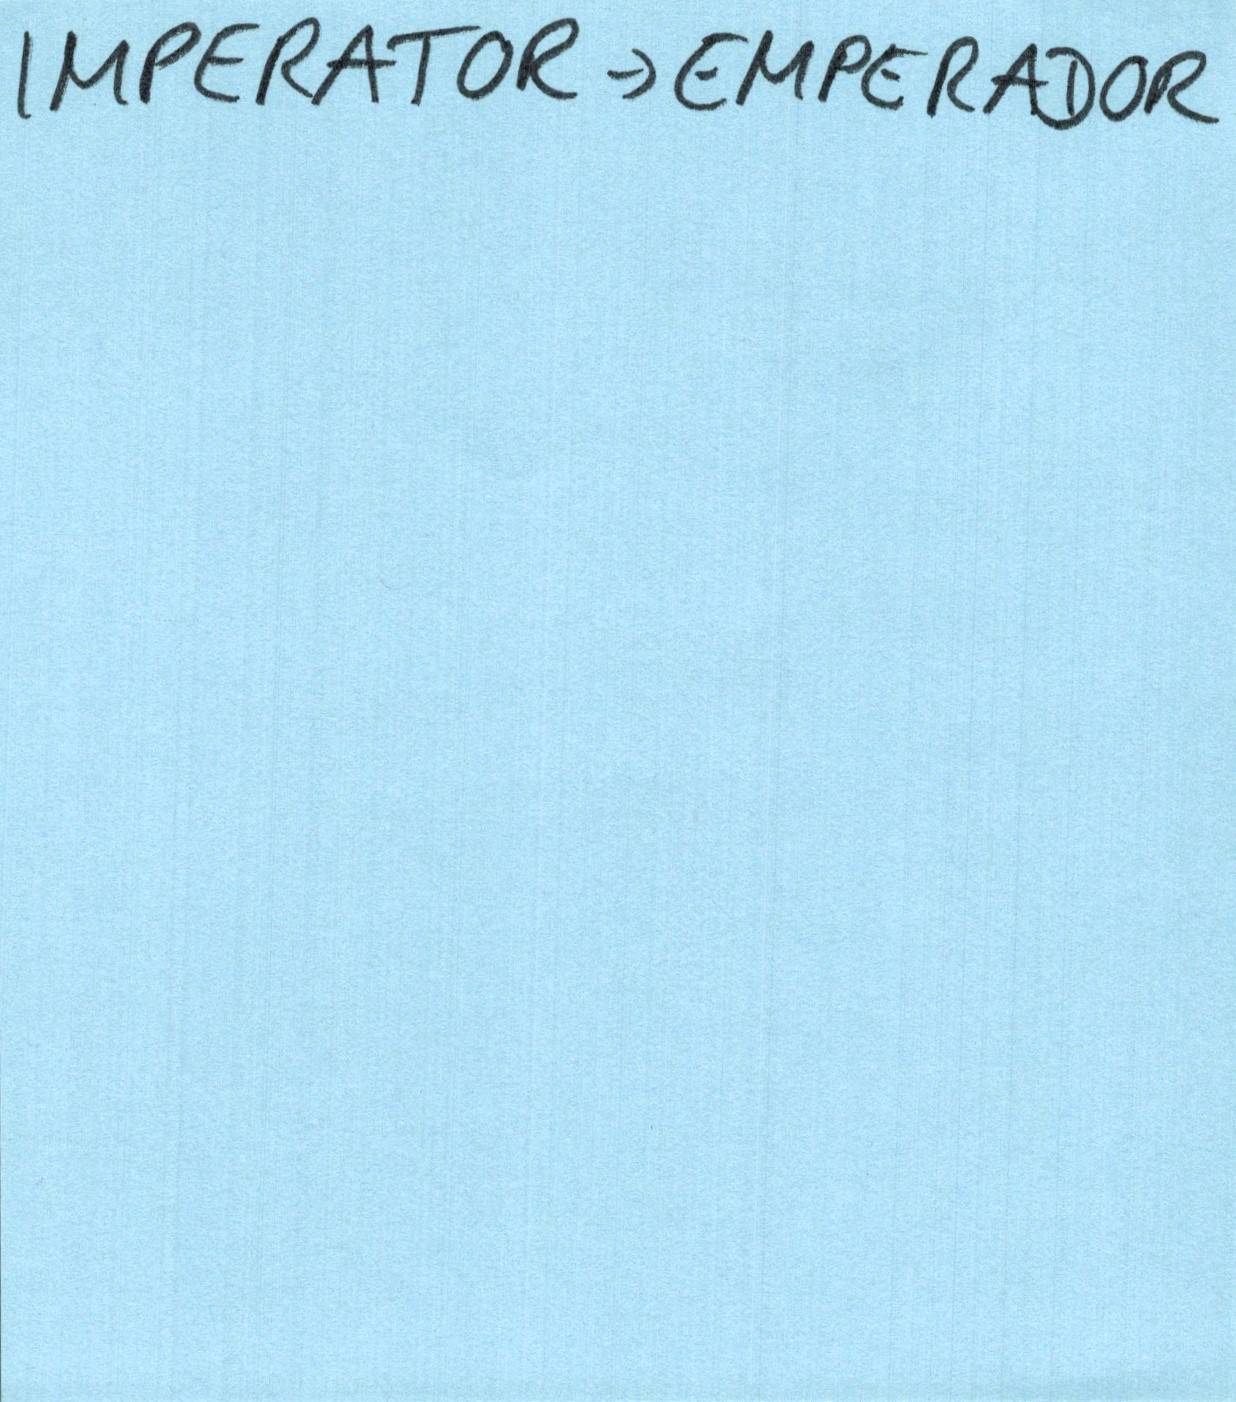 IMPERATOR → EMPERADOR